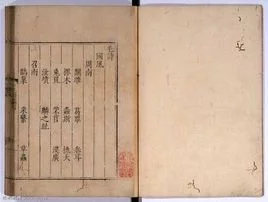 毛詩
國風
周南
關雎 葛覃 卷耳
樛木 螽斯 桃夭
兔罝 芣苢 漢廣
汝墳 麟之趾
召南
鵲巢 采蘩 草蟲